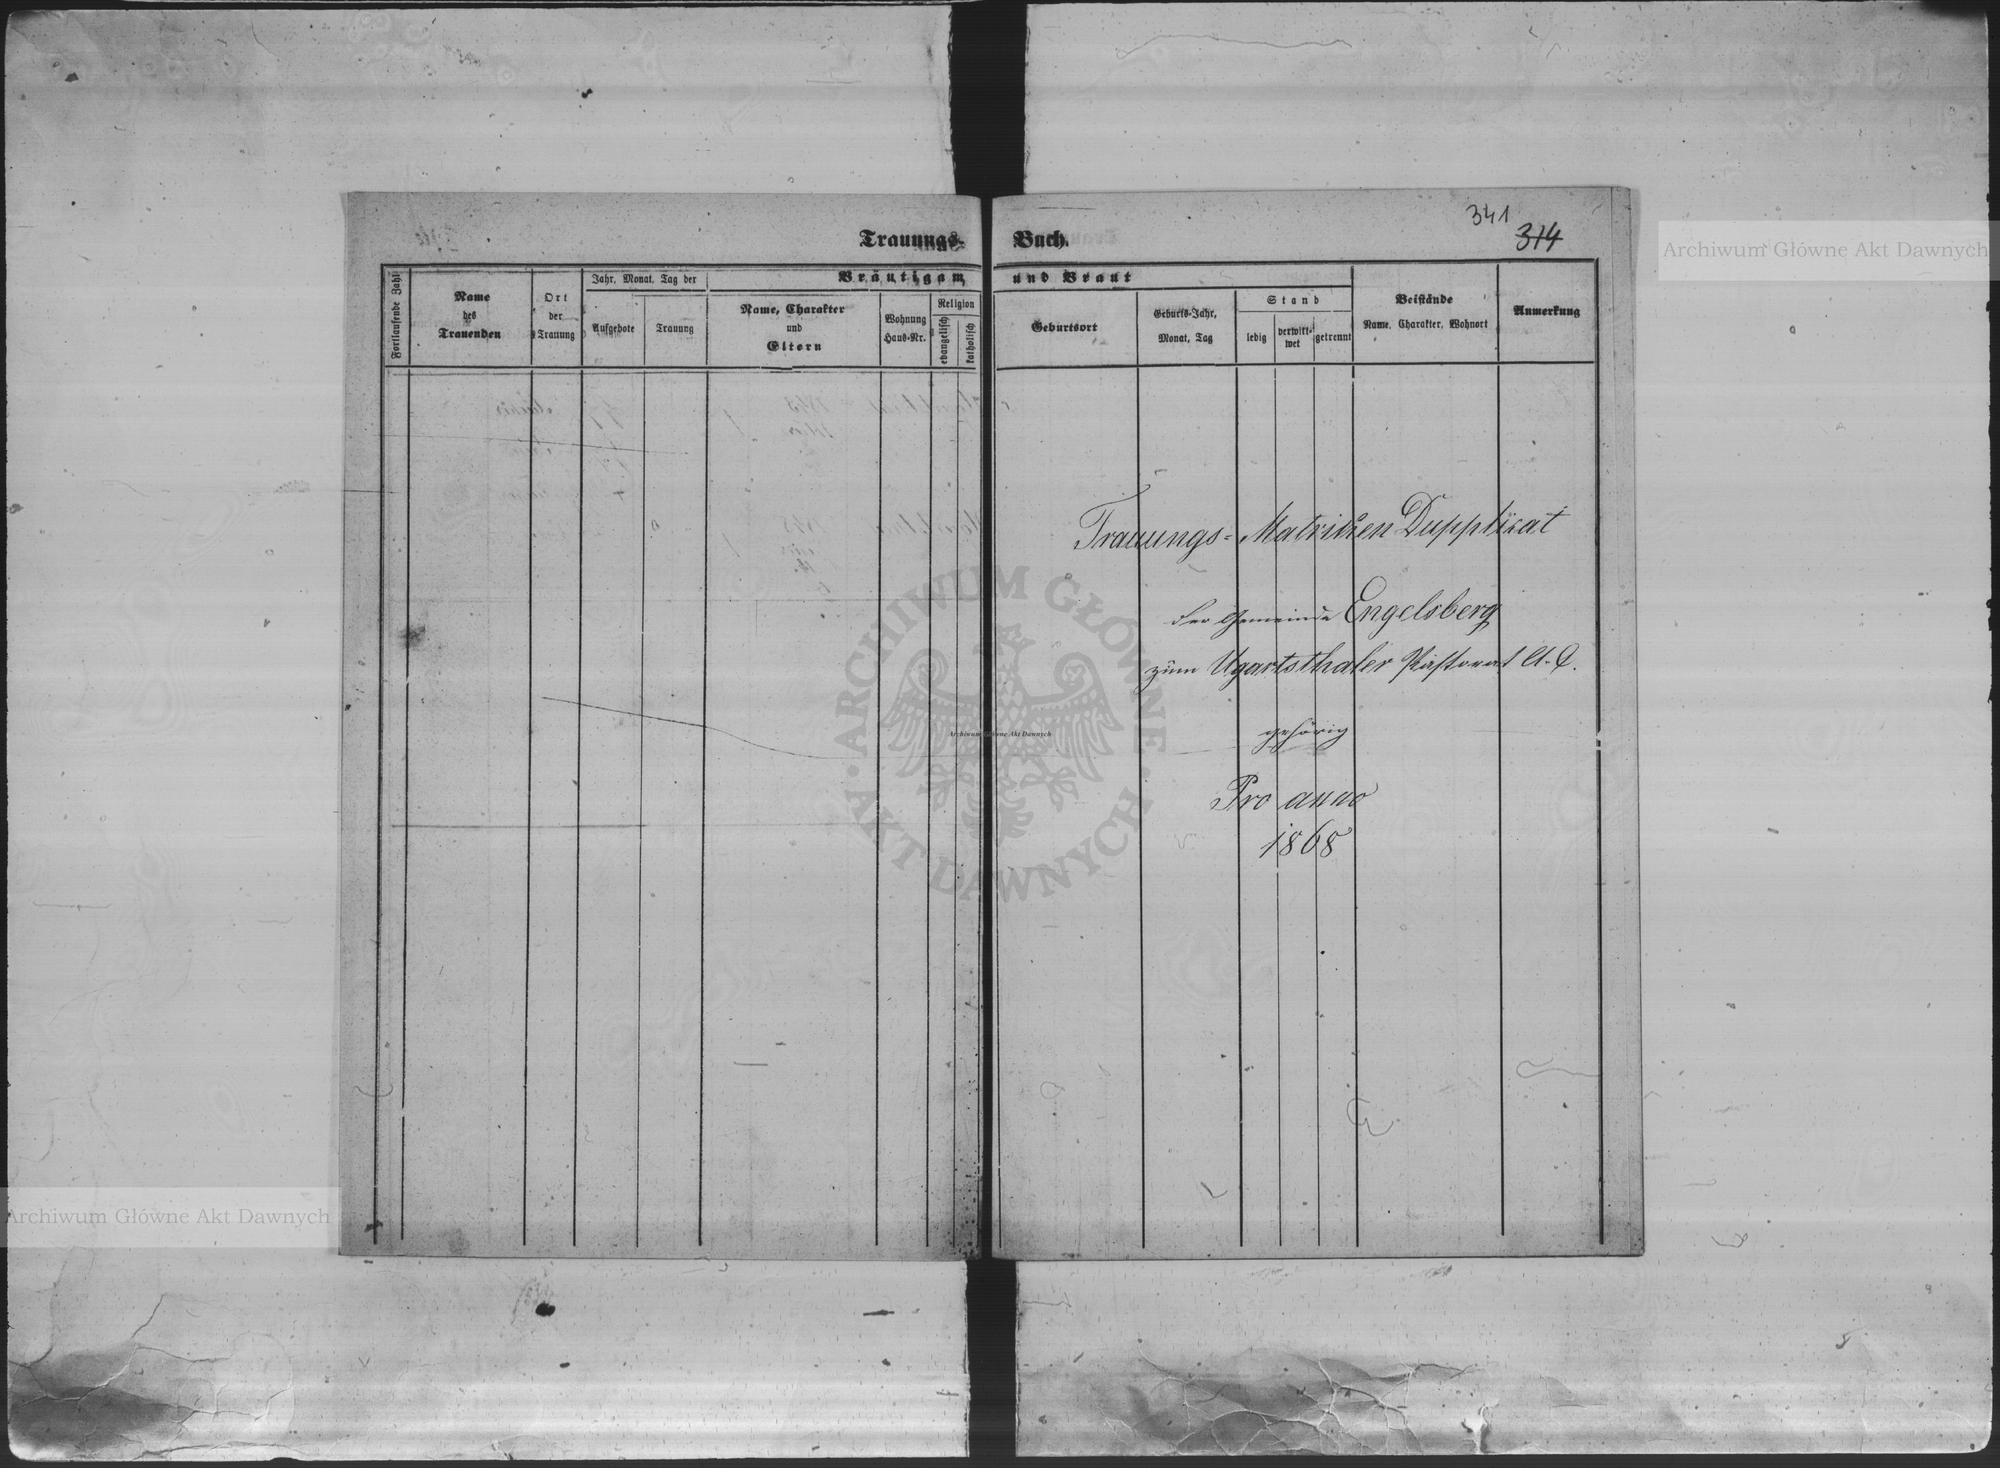 341
314
Trauungs-Buch.
Bräutigam und Braut
Fortlaufende Zahl
Name
des
Trauenden
Ort
der
Trauung
Jahr, Monat, Tag der
Aufgebote
Trauung
Name, Charakter
und
Eltern
Wohnung
Haus-Nr.
Religion
evangelisch
katholisch
Geburtsort
Geburts-Jahr,
Monat, Tag
Stand
ledig
verwitt-
wet
getrennt
Beistände
Name, Charakter, Wohnort
Anmerkung
Trauungs=Matricken Dupplicat
der Gemeinde Engelsberg
zum Ugartsthaler Pastorat A. C.
gehörig
Pro anno
1868
Archiwum Główne Akt Dawnych
ARCHIWUM GŁÓWNE
AKT DAWNYCH
Archiwum Główne Akt Dawnych
Archiwum Główne Akt Dawnych